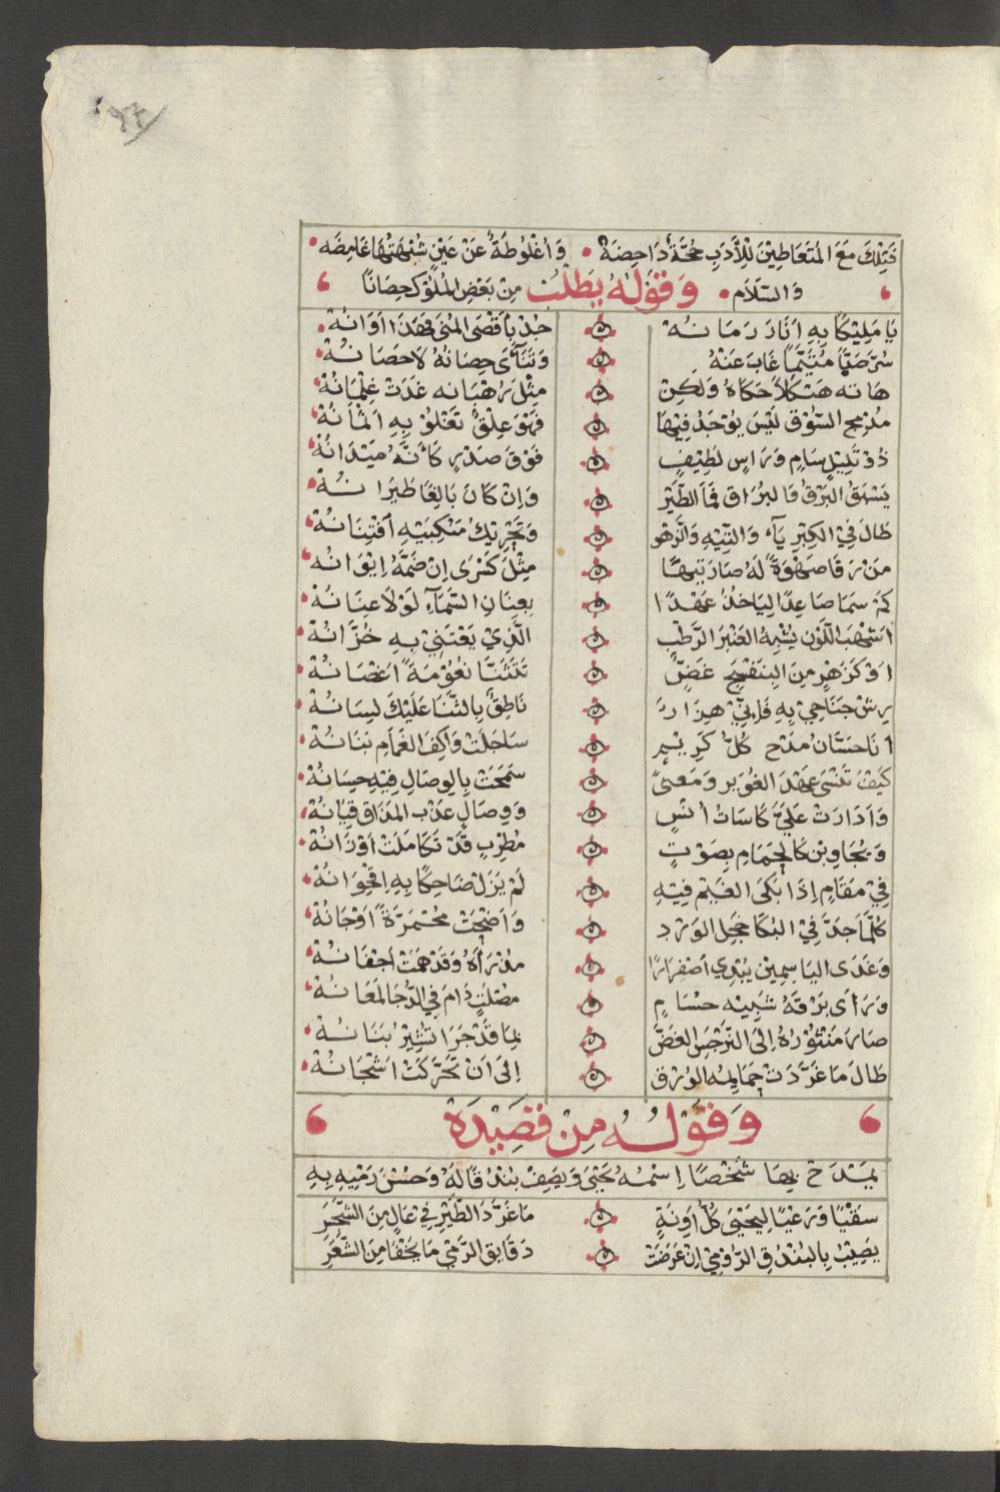 فتلك مع المتعاطين للأدب حجة داحضة • واغلوطة عن عين شبهتها غامضه
والسلام • وقوله يطلب من بعض الملوك حصانًا
يا مليكًا به انار زمانه جد باقصى المنى فهذا اوانه
سرّ صبًّا متيّمًا غاب عنه وتناءى حصانه لا حصانه
هانه هيكلاً حكاه ولكن مثل رهبانه غدت غلمانه
مدمج السوق ليس يوجد فيها فهو علق تغلو به اثمانه
ذو تليل سام وراس لطيف فوق صدر كأنه ميدانه
يسبق البرق فالبراق فما الطير وان كان بالغًا طيرانه
طال في الكبرياء والتيه والزهو وتحريك منكبيه افتنانه
من رقا صهوة له صار تيهًا مثل كسرى ان ضمه ايوانه
كم سما صاعدًا لياخذ عهدًا بعنان السماء لولا عنانه
اشهب اللون يشبه العنبر الرطب الذي يعتني به خزانه
او كزهر من البنفسج غضٍّ تتثنا نعومة اغصانه
رش جناحي به فاني هزار ناطق بالثنا عليك لسانه
انا حسان مدح كل كريم ساجلت واكف الغمام بنانه
كيف تنسى عهد الغوير ومعنىً سمحت بالوصال فيه حسانه
وادارت علي كاسات انس ووصال عذب المذاق قيانه
ويجاوبن كالحمام بصوت مطرب قد تكاملت اوزانه
في مقام اذا بكى الغيم فيه لم يزل ضاحكًا به اقحوانه
كلما جد في البكا خجل الورد واضحت محمرة اوجانه
وغدى الياسمين يبدي اصفرارًا مذ رآه وقد همت اجفانه
وراى برقه شبيه حسام مصلت دام في الدجا لمعانه
صار منثوره الى النرجس الغض لما قد جرا تشير بنانه
طال ما غردت حمايمه الورق الى ان تحركت اشجانه
وقوله من قصيدة
يمدح بها شخصًا اسمه يحيى ويصف بندقا له وحسن رميه به
سقيًا ورعيًا ليحيى كل اونة ما غرد الطير في عال من الشجر
يصيب بالبندق الرومي ان عرضت دقايق الرمي ما يخفا من الشعر